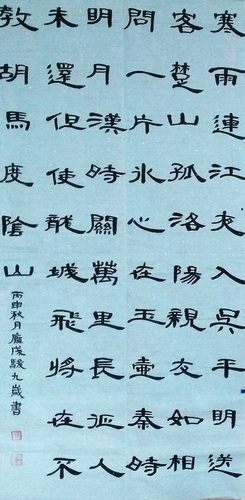 寒雨連江夜入吳平明送
客楚山孤洛陽親友如相
問一片冰心在玉壺秦時
明月漢時關萬里長征人
未還但使龍城飛將在不
教胡馬度陰山
丙申秋月龐駿九歲書